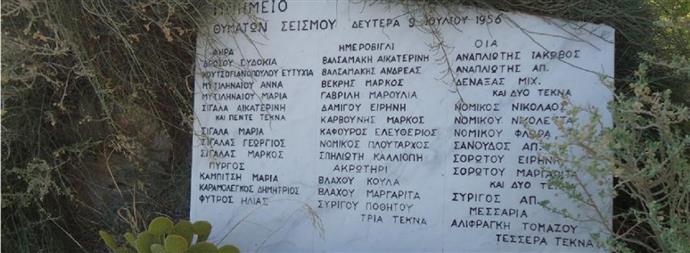 ΜΝΗΜΕΙΟ
ΘΥΜΑΤΩΝ ΣΕΙΣΜΟΥ ΔΕΥΤΕΡΑ 9 ΙΟΥΛΙΟΥ 1956
ΦΗΡΑ
ΔΡΟΣΟΥ ΕΥΔΟΚΙΑ
ΚΟΥΤΣΟΓΙΑΝΟΠΟΥΛΟΥ ΕΥΤΥΧΙΑ
ΜΥΤΙΛΗΝΑΙΟΥ ΑΝΝΑ
ΜΥΤΙΛΗΝΑΙΟΥ ΜΑΡΙΑ
ΣΙΓΑΛΑ ΑΙΚΑΤΕΡΙΝΗ
ΚΑΙ ΠΕΝΤΕ ΤΕΚΝΑ
ΣΙΓΑΛΑ ΜΑΡΙΑ
ΣΙΓΑΛΑΣ ΓΕΩΡΓΙΟΣ
ΣΙΓΑΛΑΣ ΜΑΡΚΟΣ
ΠΥΡΓΟΣ
ΚΑΜΠΙΤΣΗ ΜΑΡΙΑ
ΚΑΡΑΜΟΛΕΓΚΟΣ ΔΗΜΗΤΡΙΟΣ
ΦΥΤΡΟΣ ΗΛΙΑΣ
ΗΜΕΡΟΒΙΓΛΙ
ΒΑΛΣΑΜΑΚΗ ΑΙΚΑΤΕΡΙΝΗ
ΒΑΛΣΑΜΑΚΗΣ ΑΝΔΡΕΑΣ
ΒΕΚΡΗΣ ΜΑΡΚΟΣ
ΓΑΒΡΙΛΗ ΜΑΡΟΥΛΙΑ
ΔΑΜΙΓΟΥ ΕΙΡΗΝΗ
ΚΑΡΒΟΥΝΗΣ ΜΑΡΚΟΣ
ΚΑΦΟΥΡΟΣ ΕΛΕΥΘΕΡΙΟΣ
ΝΟΜΙΚΟΣ ΠΛΟΥΤΑΡΧΟΣ
ΣΠΗΛΙΩΤΗ ΚΑΛΛΙΟΠΗ
ΑΚΡΩΤΗΡΙ
ΒΛΑΧΟΥ ΚΟΥΛΑ
ΒΛΑΧΟΥ ΜΑΡΓΑΡΙΤΑ
ΣΥΡΙΓΟΥ ΠΟΘΗΤΟΥ
ΤΡΙΑ ΤΕΚΝΑ
ΟΙΑ
ΑΝΑΠΛΙΩΤΗΣ ΙΑΚΩΒΟΣ
ΑΝΑΠΛΙΩΤΗΣ ΑΠ.
ΔΕΝΑΞΑΣ ΜΙΧ.
ΚΑΙ ΔΥΟ ΤΕΚΝΑ
ΝΟΜΙΚΟΣ ΝΙΚΟΛΑΟΣ
ΝΟΜΙΚΟΥ ΝΙΚΟΛΕΤΤΑ
ΝΟΜΙΚΟΥ ΦΛΩΡΑ
ΣΑΝΟΥΔΟΣ ΑΠ.
ΣΟΡΩΤΟΥ ΕΙΡΗΝΗ
ΣΟΡΩΤΟΥ ΜΑΡΓΑΡΙΤΑ
ΚΑΙ ΔΥΟ ΤΕΚΝ
ΣΥΡΙΓΟΣ ΑΠ.
ΜΕΣΣΑΡΙΑ
ΑΛΙΦΡΑΓΚΗ ΤΟΜΑΖΟΥ
ΤΕΣΣΕΡΑ ΤΕΚΝΑ